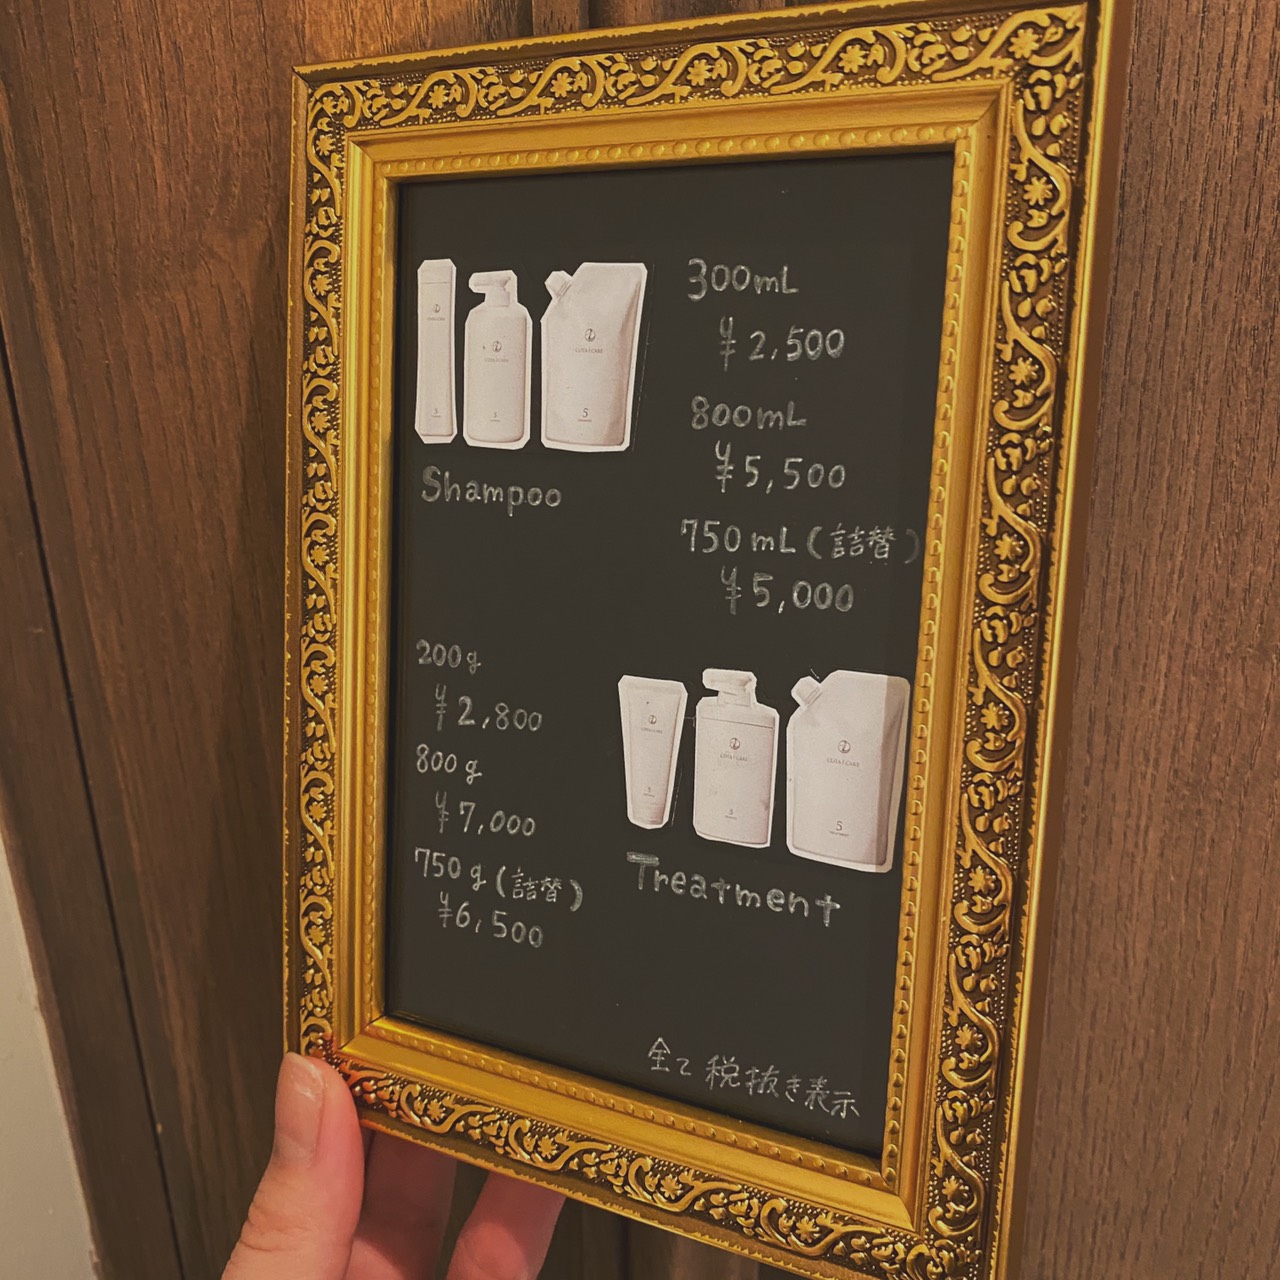 300mL
¥2,500
800mL
¥5,500
750mL(詰替)
¥5,000
Shampoo
5
5
5
200g
¥2,800
800g
¥7,000
750g(詰替)
¥6,500
5
5
5
Treatment
全て税抜き表示